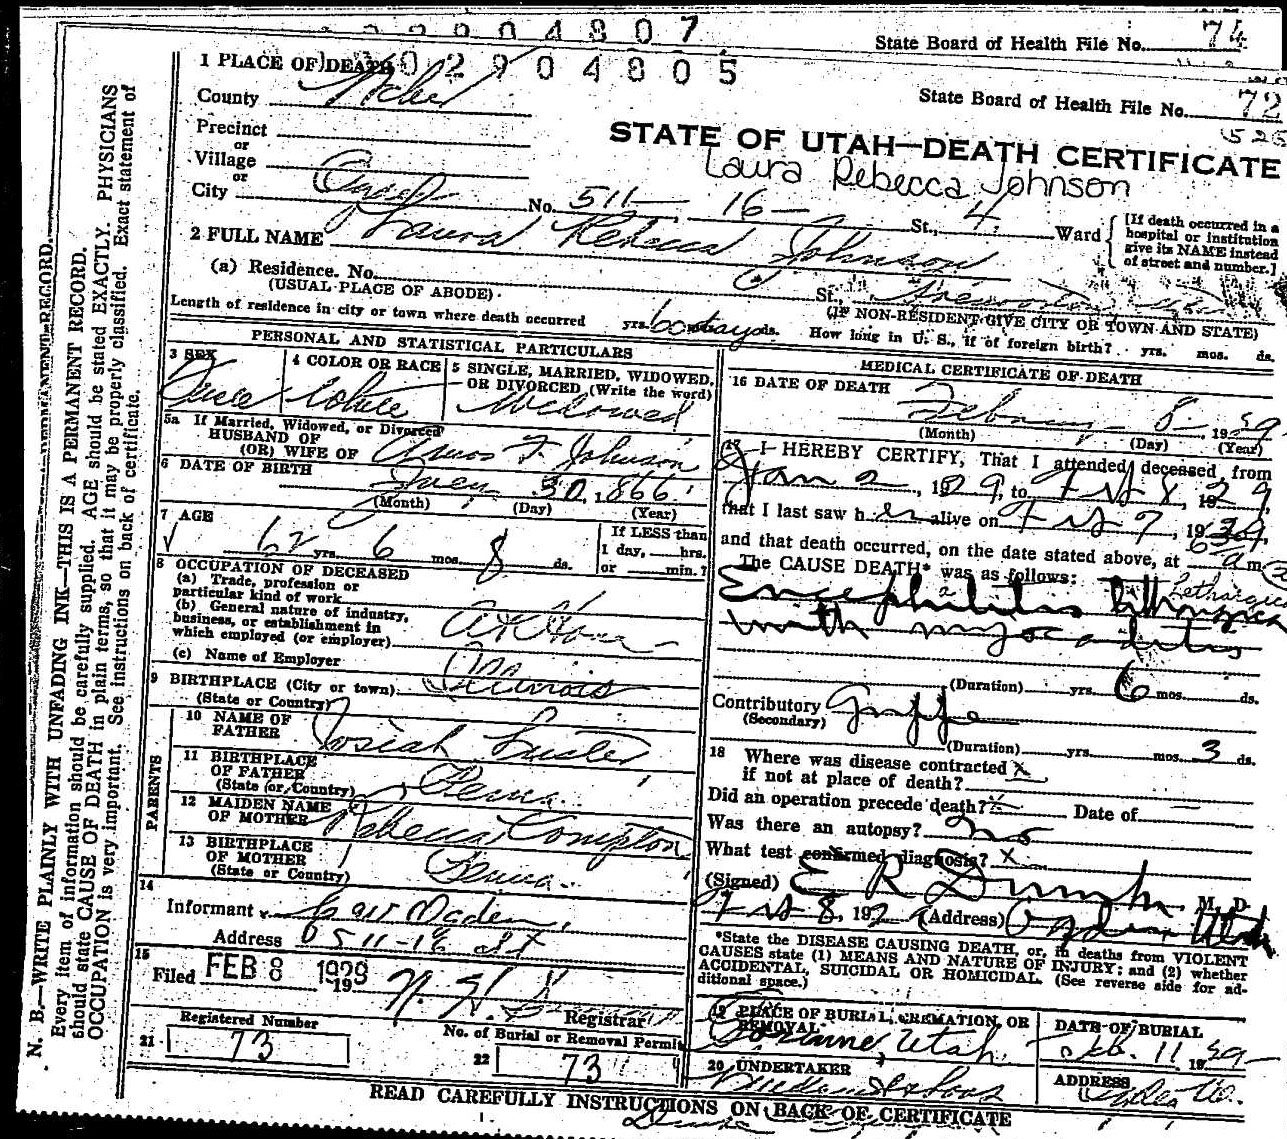 2904807
State Board of Health File No. 74
02904805
1 PLACE OF DEATH
County Weber
State Board of Health File No. 72
525
Precinct
or
Village
or
City Ogden No. 511 - 16 - St., 4 Ward
STATE OF UTAH—DEATH CERTIFICATE
Laura Rebecca Johnson
[If death occurred in a hospital or institution give its NAME instead of street and number.]
2 FULL NAME Laura Rebecca Johnson
(a) Residence. No. St., Tremonton
(USUAL PLACE OF ABODE)
(IF NON-RESIDENT GIVE CITY OR TOWN AND STATE)
Length of residence in city or town where death occurred yrs. 60 days ds. How long in U. S., if of foreign birth? yrs. mos. ds.
PERSONAL AND STATISTICAL PARTICULARS
3 SEX
4 COLOR OR RACE White
5 SINGLE, MARRIED, WIDOWED, OR DIVORCED (Write the word) Widowed
5a If Married, Widowed, or Divorced
HUSBAND OF
(OR) WIFE OF Amos F. Johnson
6 DATE OF BIRTH 30, 1866
(Month) (Day) (Year)
7 AGE 62 yrs. 6 mos. 8 ds.
If LESS than 1 day, hrs. or min.?
8 OCCUPATION OF DECEASED
(a) Trade, profession or particular kind of work
(b) General nature of industry, business, or establishment in which employed (or employer) At Home
(c) Name of Employer
9 BIRTHPLACE (City or town) Illinois
(State or Country)
PARENTS
10 NAME OF FATHER Josiah
11 BIRTHPLACE OF FATHER
(State or Country)
12 MAIDEN NAME OF MOTHER Rebecca Compton
13 BIRTHPLACE OF MOTHER
(State or Country)
14
Informant Ogden,
Address 511-16 St
15
Filed FEB 8 1929 19
Registrar
Registered Number
21 73
No. of Burial or Removal Permit
22 73
MEDICAL CERTIFICATE OF DEATH
16 DATE OF DEATH February 8 - 1929
(Month) (Day) (Year)
17 I HEREBY CERTIFY, That I attended deceased from
Jan 2, 1929, to Feb 8, 1929,
that I last saw her alive on Feb 7, 1929,
and that death occurred, on the date stated above, at a m
The CAUSE DEATH* was as follows:
Lethargica
Encephalitis
with myocarditis
(Duration) yrs. 6 mos. ds.
Contributory Grippe
(Secondary)
(Duration) yrs. mos. 3 ds.
18 Where was disease contracted x
if not at place of death?
Did an operation precede death? Date of
Was there an autopsy? no
What test confirmed diagnosis? x
(Signed) E R M. D.
Feb 8, 192 (Address) Ogden Utah
*State the DISEASE CAUSING DEATH, or, in deaths from VIOLENT
CAUSES state (1) MEANS AND NATURE OF INJURY; and (2) whether
ACCIDENTAL, SUICIDAL OR HOMICIDAL. (See reverse side for additional space.)
19 PLACE OF BURIAL, CREMATION, OR REMOVAL
Corinne, Utah.
DATE OF BURIAL
Feb. 11, 1929
20 UNDERTAKER
ADDRESS
Ogden Ut.
READ CAREFULLY INSTRUCTIONS ON BACK OF CERTIFICATE
N. B.—WRITE PLAINLY WITH UNFADING INK—THIS IS A PERMANENT RECORD.
Every item of information should be carefully supplied. AGE should be stated EXACTLY. PHYSICIANS
should state CAUSE OF DEATH in plain terms, so that it may be properly classified. Exact statement of
OCCUPATION is very important. See instructions on back of certificate.